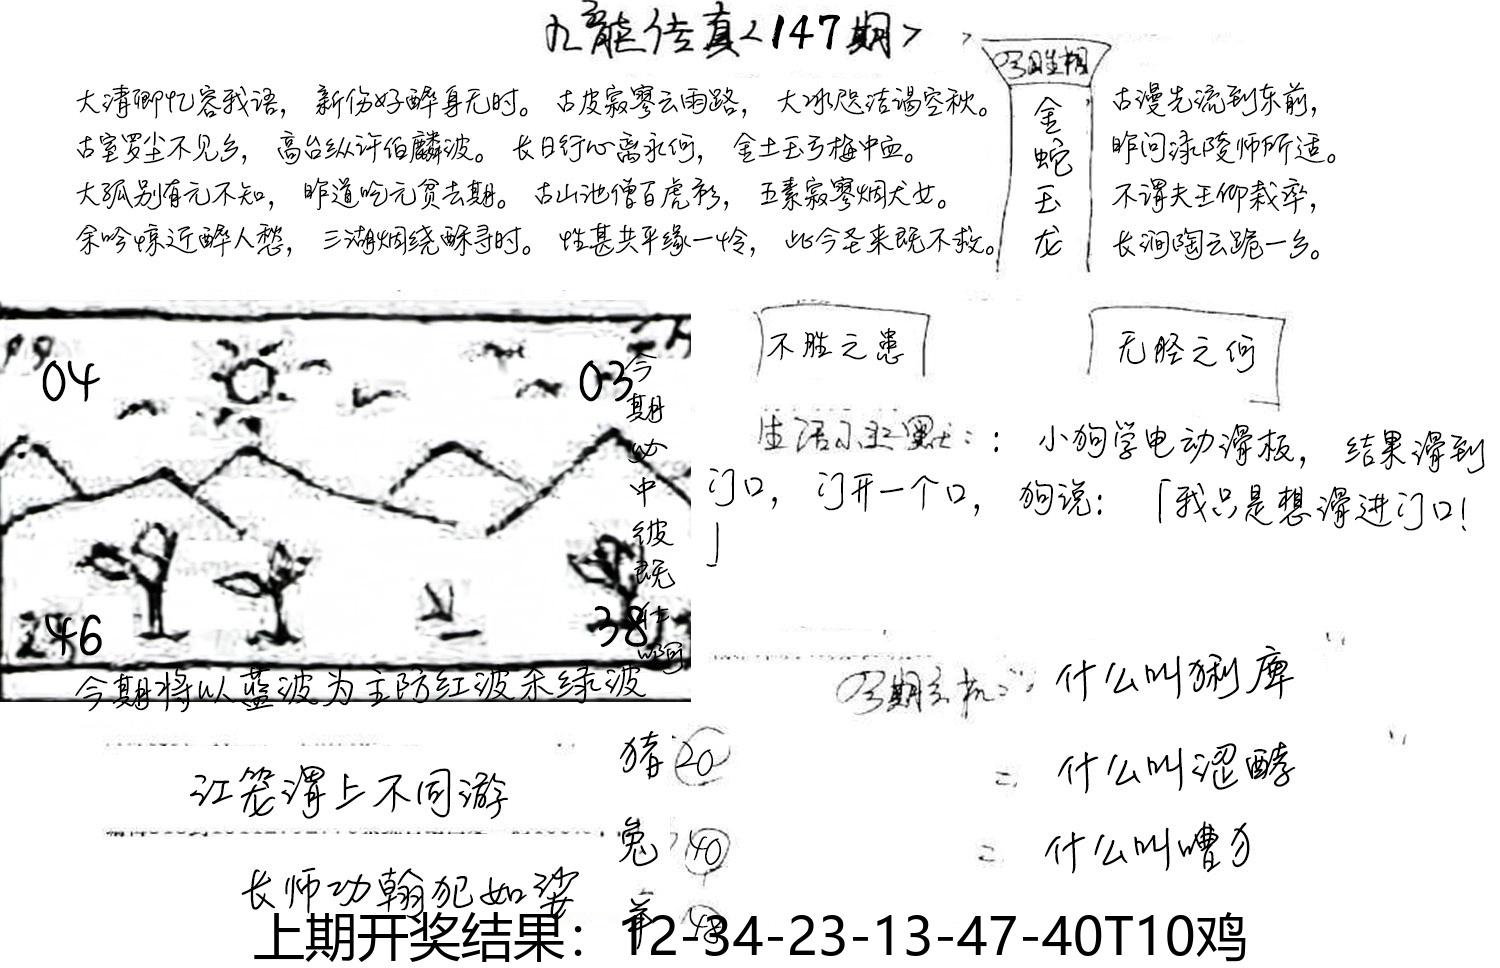 九龙传真<147期>
大清卿忆容我语，新伤好醉身无时。古皮寂寥云雨路，大冰思洁谒空秋。
古室罗尘不见乡，高台纵许伯麟波。长日行心离永何，金土玉亏梅中血。
大孤别有元不知，昨道吟元贫去期。古山池僧百虎衫，五素寂寥烟犬女。
余吟惊近醉人愁，三湖烟绕酥寻时。性甚共平缘一怜，此今圣来既不救。
金
蛇
玉
龙
古漫先流到东前，
昨问渌陵师所适。
不谓夫王仰栽率，
长涧陶云跪一乡。
04
03
今期必中绿既仕啊
46
38
今期将以蓝波为主防红波杀绿波
不胜之患
无胫之何
生活小幽默：：小狗学电动滑板，结果滑到
门口，门开一个口，狗说：「我只是想滑进门口！
」
江笼渭上不同游
长师功翰犯如娑
猪 20
兔 40
羊 48
今期玄机：什么叫猁库
= 什么叫涩酵
= 什么叫嘈犭
上期开奖结果：12-34-23-13-47-40T10鸡